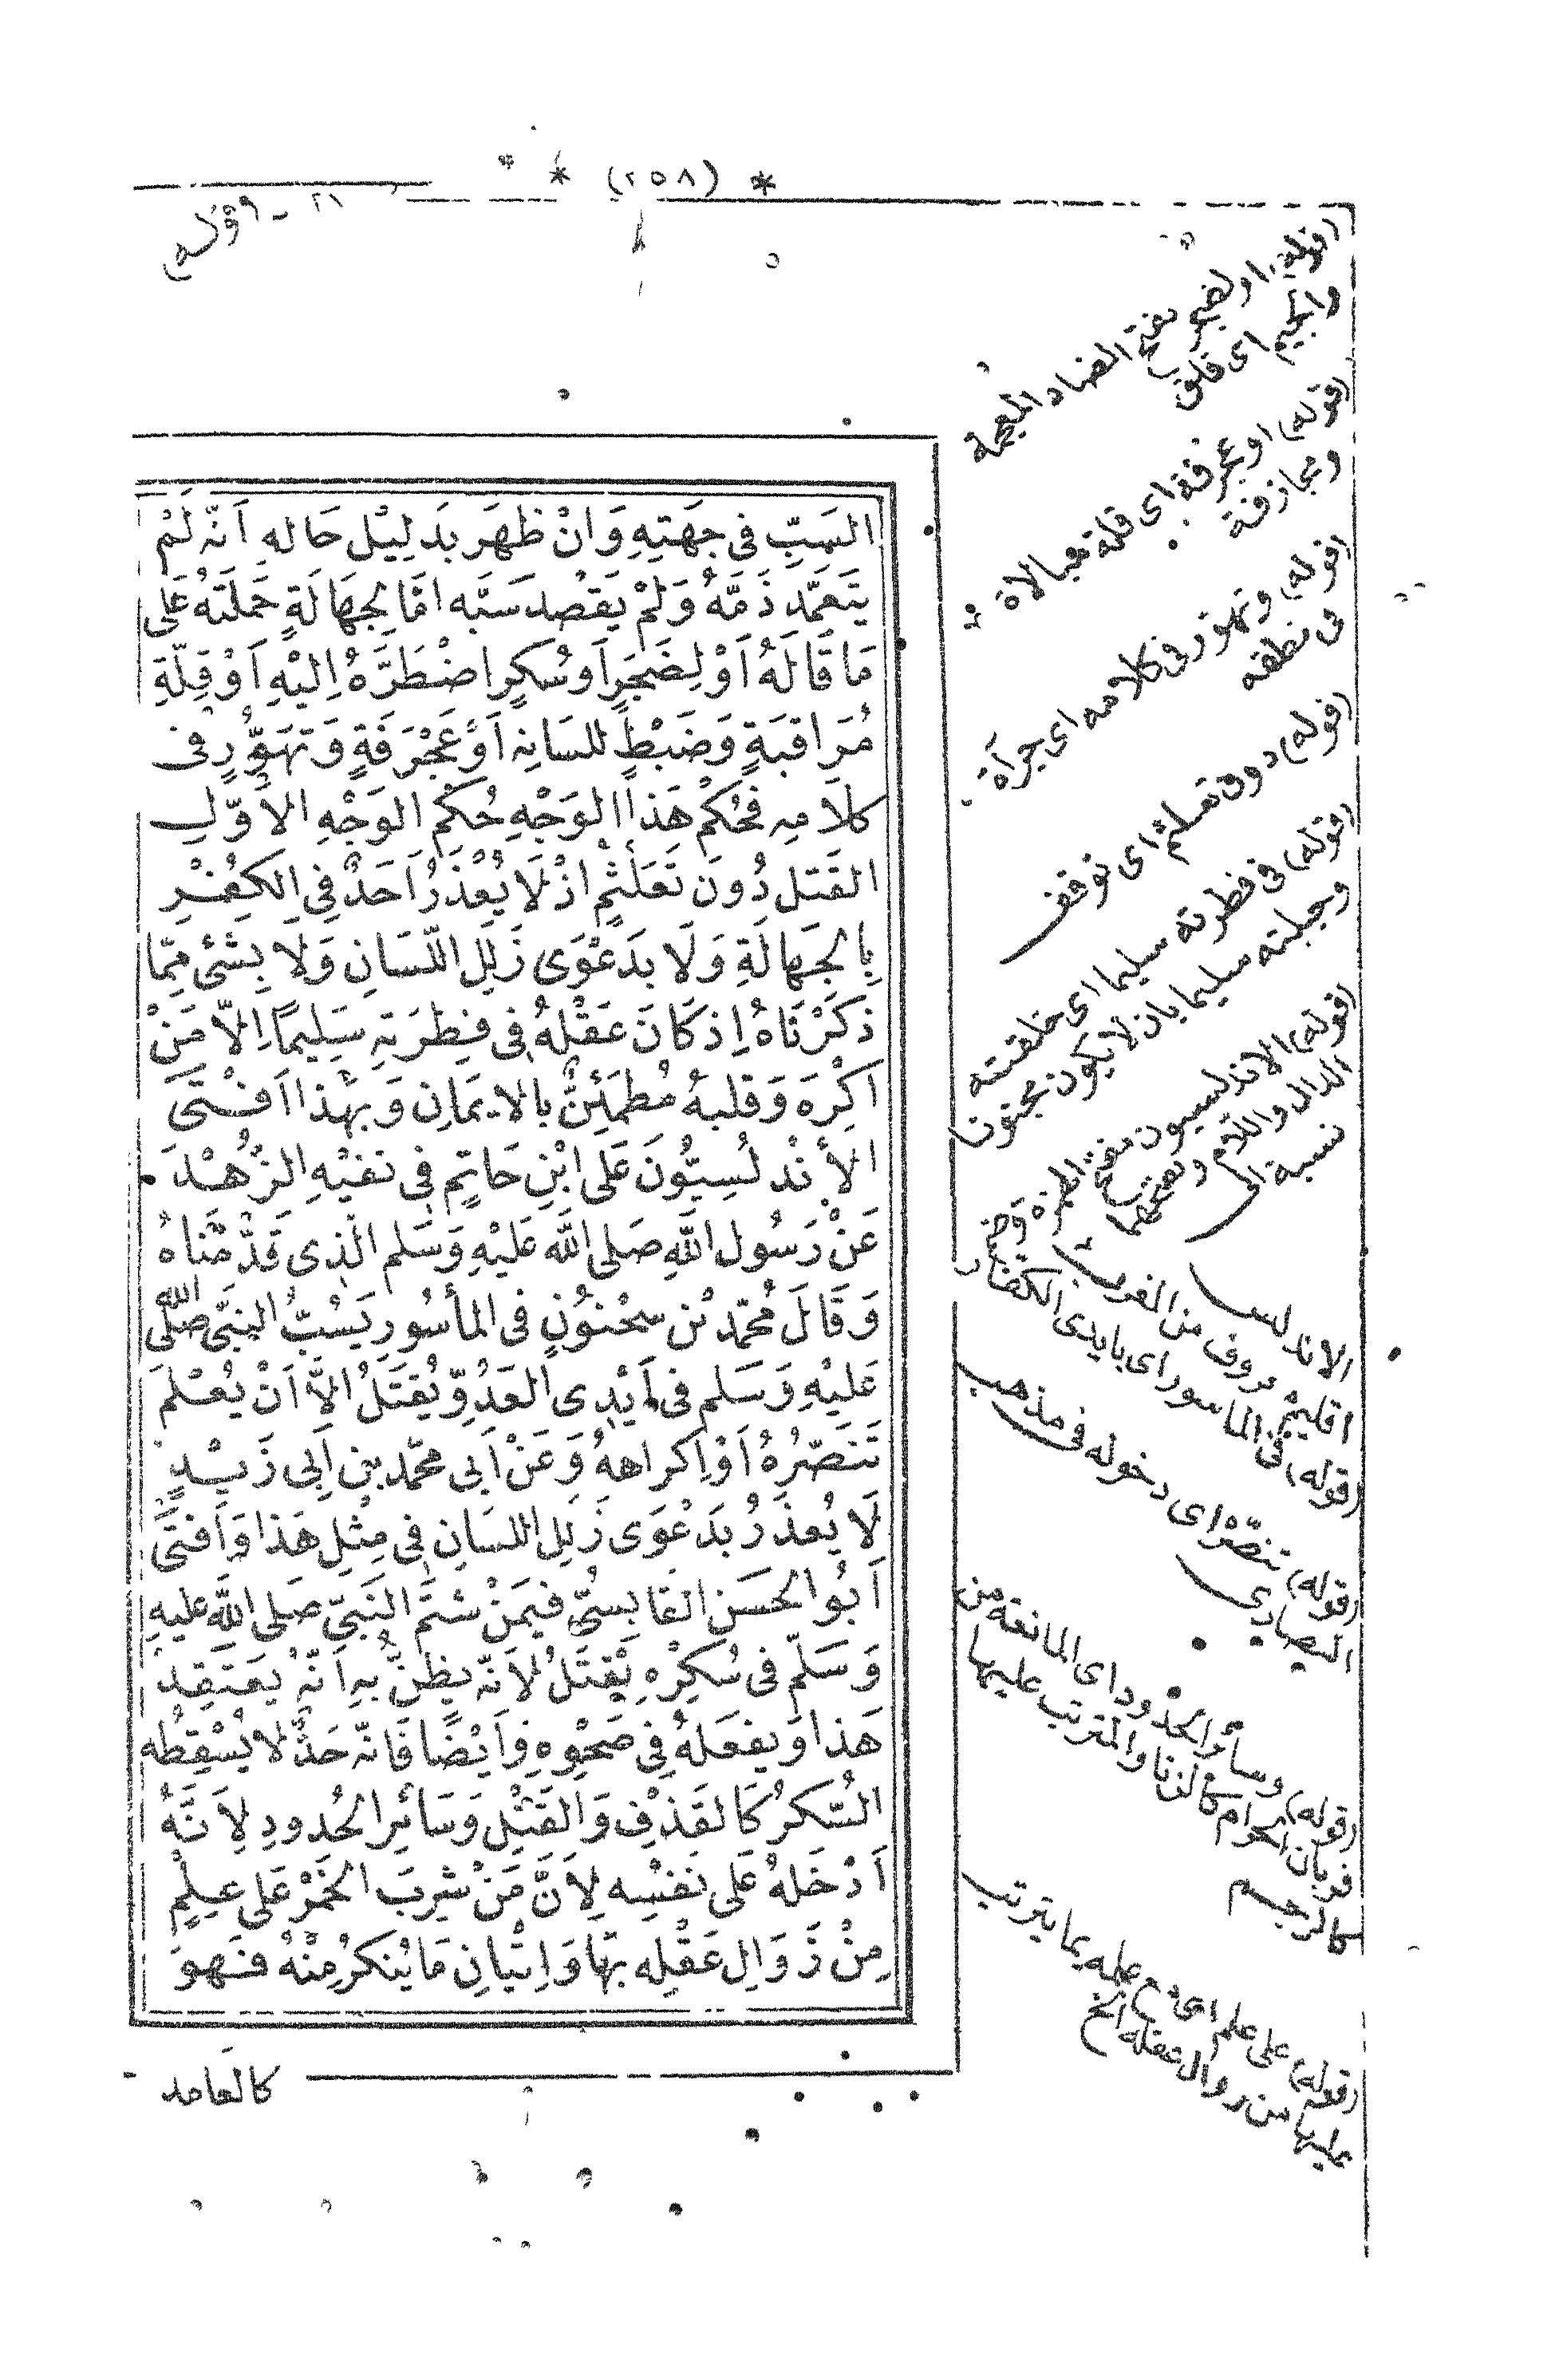 * (٢٥٨) *
السَبِّ فى جِهَتِهِ وَانْ ظَهَر بِدَلِيْل حَاله اَنّه لَمْ
يَتَعَمَّد ذَمَّهُ وَلَمْ يَقصُد سَبَّه امَّا لجِهَالَةٍ حَملَتْهُ عَلى
مَا قَالَهُ اَوْ لِضَجَرٍ اَو سُكرٍ اضْطَرَّهُ اِليْهِ اَوْ قِلّةِ
مُرَاقبَةٍ وَضَبْطٍ للسَانِه اَوْ عَجْرَفَةٍ وَتَهَوُّرٍ فى
كلَامِه فحُكمُ هَذا الوَجْهِ حُكْم الوَجْهِ الاَوّلِ
القَتل دُونَ تَعَلثُمٍ اذْ لَا يُعْذَرُ اَحَدٌ فِى الكِفُرِ
بِالجَهالَةِ وَلَا بدَعْوَى زَلَلِ اللّسَانِ وَلَا بِشَئ مِمّا
ذكَرْنَاهُ اِذ كَانَ عَقْلهُ فى فِطرَتهِ سَلِيماً اِلّا مَنْ
اكْرِهَ وَقلبهُ مُطمَئِنٌّ بالايمَانِ وَبهَذا اَفْتَى
الأنْدلُسِيُّونَ عَلَى ابْنِ حَاتِم فى نفيْهِ الزُّهْدَ
عَنْ رَسُول اللهِ صَلى الله عَليْهِ وَسَلم الّذِى قدَّمْنَاهُ
وَقَالَ مُحمّد بْن سحْنُونٍ فى المأسُور يَسُبُّ النبَّى صَلّى الله
عَليْهِ وَسَلم فى اَيْدِى العَدُوِّ يُقتَلُ اِلاَّ اَنْ يُعْلَم
تَنَصّرُهُ اَوْ اِكراههُ وَعَنْ اَبى محمّد بنِ اَبِى زَيْدٍ
لَا يُعذَرُ بدَعْوَى زَلَلِ اللسَانِ فى مِثْلِ هَذا وَاَفتَى
اَبُو الحَسَن القَابسىّ فيمَنْ شتَمَ النَبىّ صَلى الله عَليهِ
وَسَلّم فى سُكرِهِ يُقتَلُ لاَنّه يظنُّ بهِ اَنّهُ يعتَقِد
هَذا وَيفعَلهُ فِى صَحْوِهِ وَاَيْضًا فَانّه حَدٌّ لا يُسْقِطُه
السُّكرُ كَالقَذْفِ وَالقَتْلِ وَسَائِر الحُدودِ لِاَنَّهُ
اَدْخَلهُ عَلَى نفْسِه لِاَنَّ مَنْ شرِبَ الخَمْر عَلى عِلمٍ
مِنْ زَوَالِ عَقْلِه بهَا وَاِتْيانِ مَا يُنكرُ مِنْهُ فَهوَ
كالعامد
(قوله) او لضجر بفتح الضاد المعجمة
والجيم اى قلق
(قوله) او عجرفة اى قلة مبالاة
ومجازفة
(قوله) وتهوّر فى كلامه اى جرأة
فى نطقه
(قوله) دون تعلثم اى توقف
(قوله) فى فطرته سليما اى خلقته
وجبلته سليما بان لا يكون مجنونا
(قوله) الاندلسيون بفتح الهمزة وضم
الدال واللام وبفتحهما
نسبة الى
الاندلس
اقليم معروف من الغرب
(قوله) فى المأسور اى بايدى الكفار
(قوله) تنصّره اى دخوله فى مذهب
النصارى
(قوله) وسائر الحدود اى المانعة من
قربان الحرام كالزنا والمترتب عليها
كالرجم
(قوله) على علم اى مع علمه بما يترتب
عليها من زوال عقله الخ